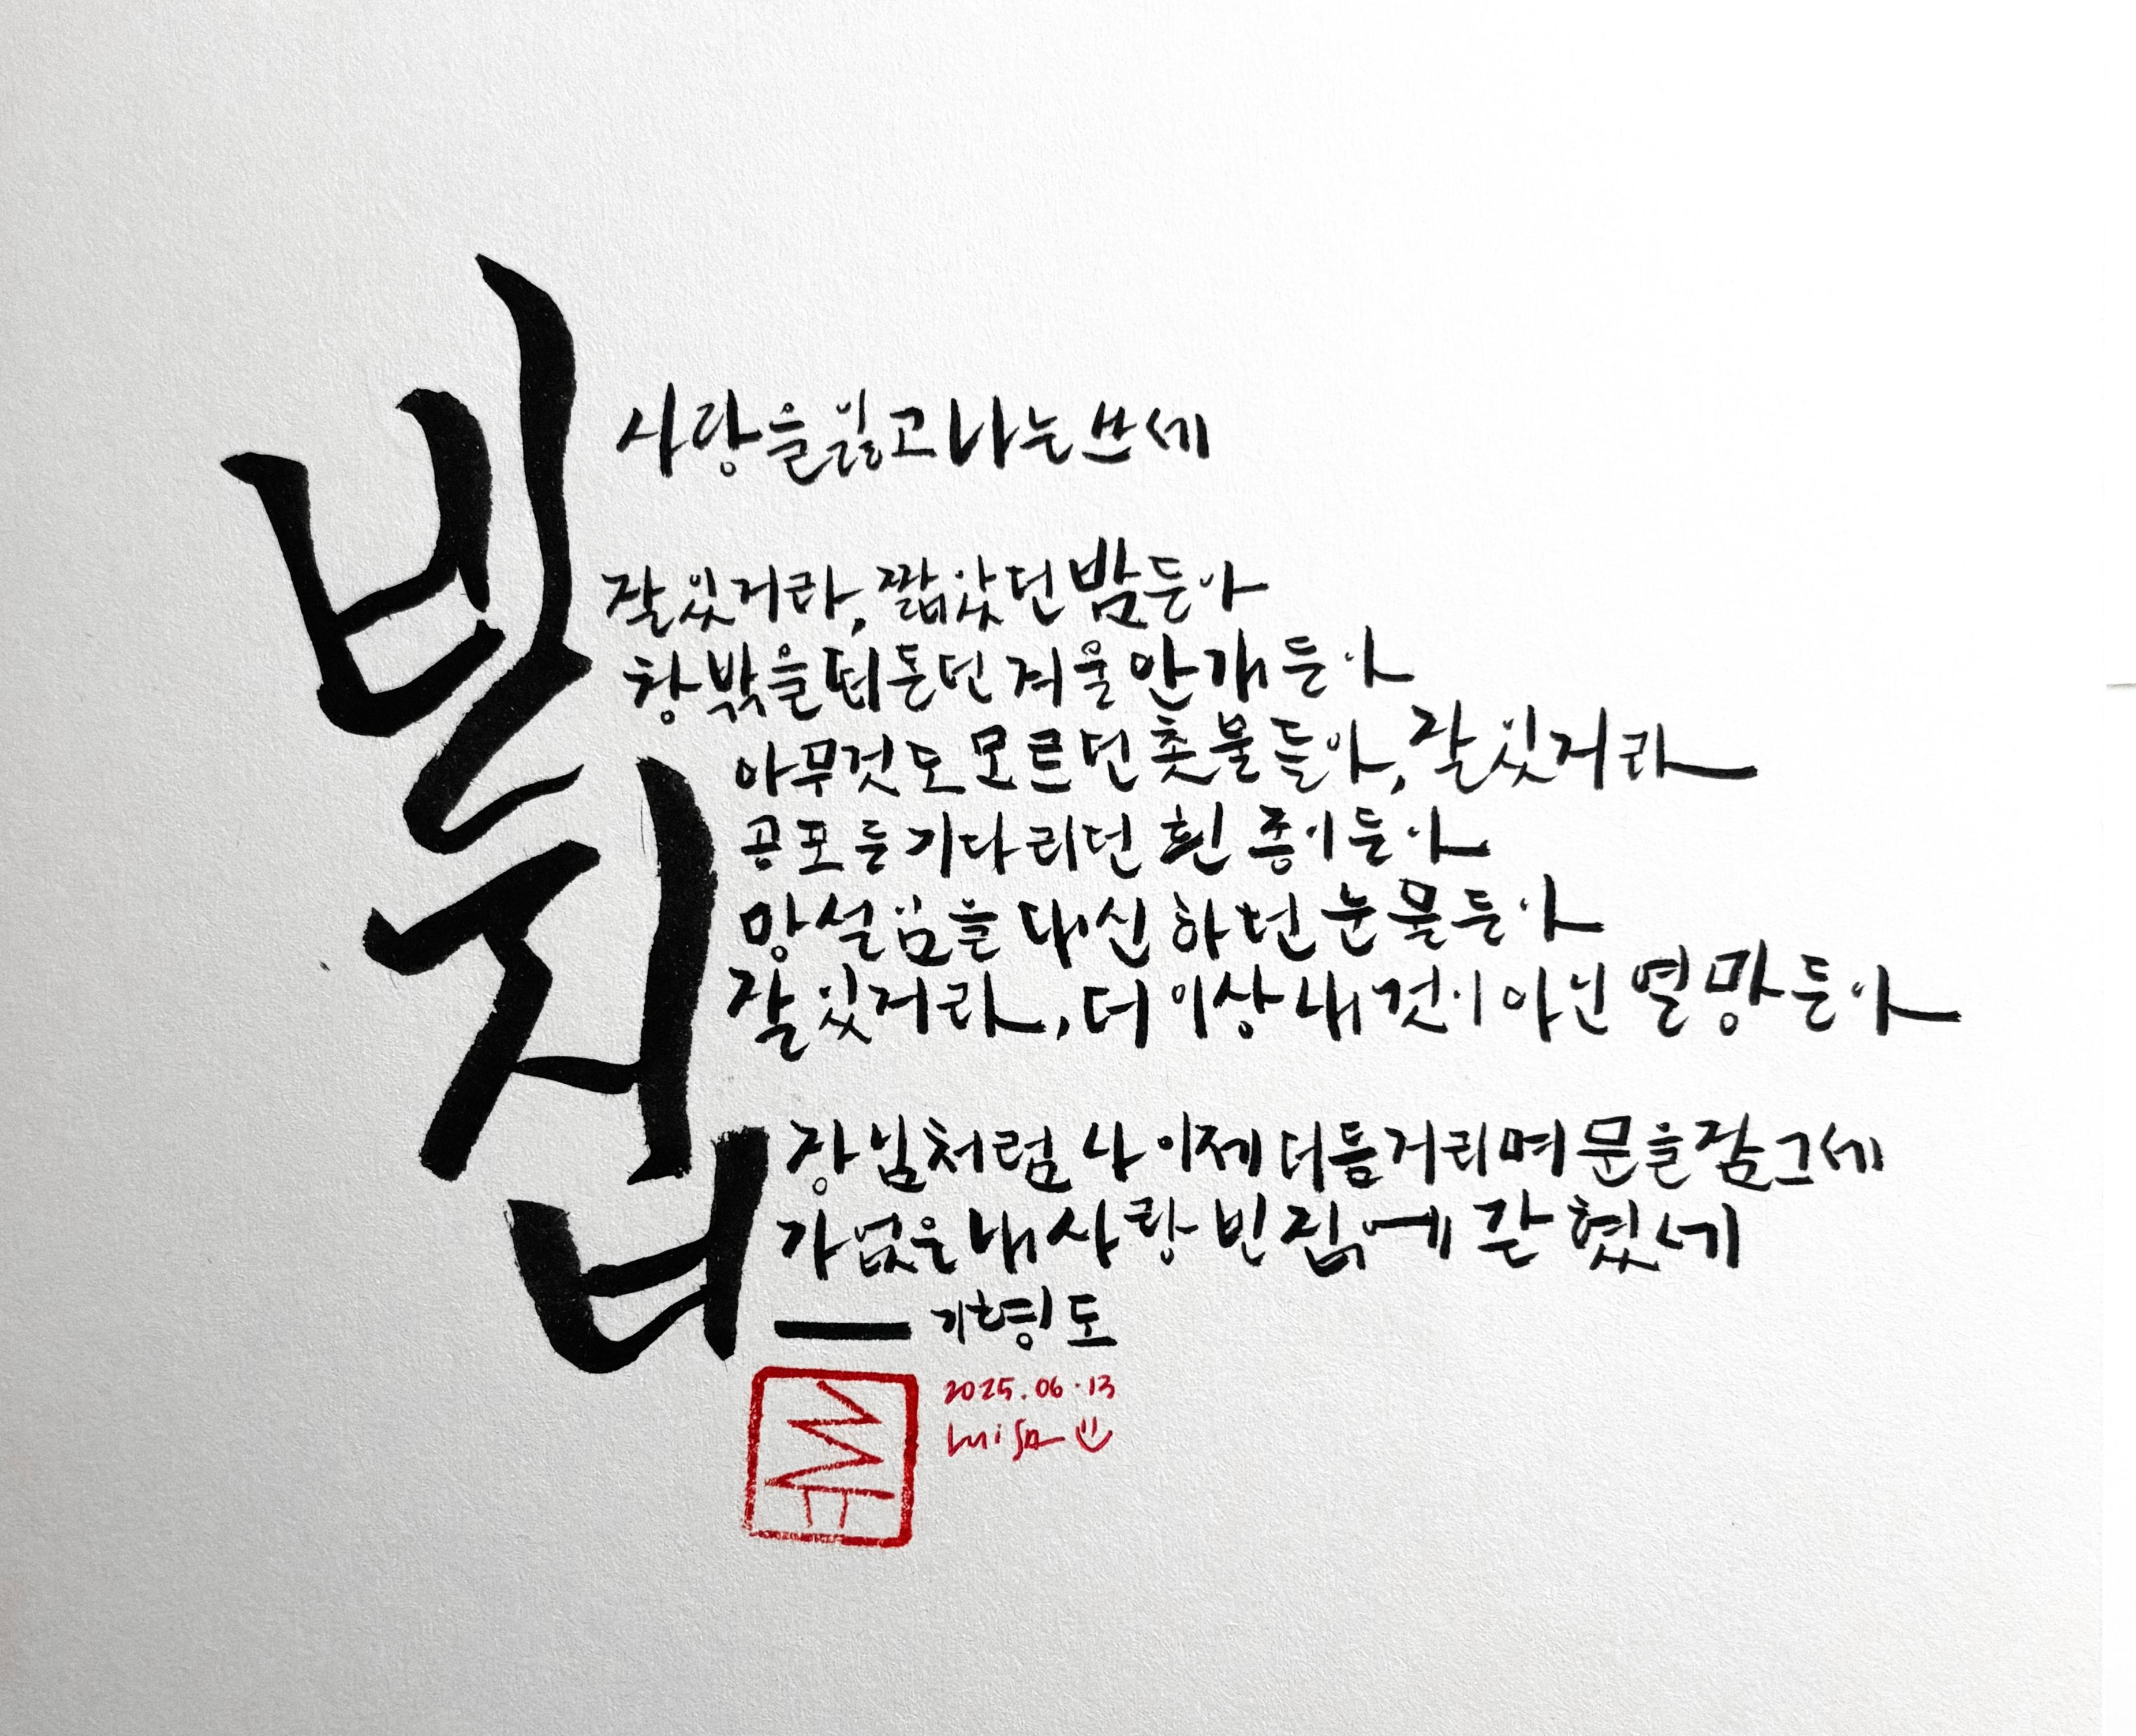 빈집
사랑을 잃고 나는 쓰네
잘 있거라, 짧았던 밤들아
창밖을 떠돌던 겨울 안개들아
아무것도 모르던 촛불들아, 잘 있거라
공포를 기다리던 흰 종이들아
망설임을 대신하던 눈물들아
잘 있거라, 더 이상 내 것이 아닌 열망들아
장님처럼 나 이제 더듬거리며 문을 잠그네
가엾은 내 사랑 빈집에 갇혔네
— 기형도
2025.06.13